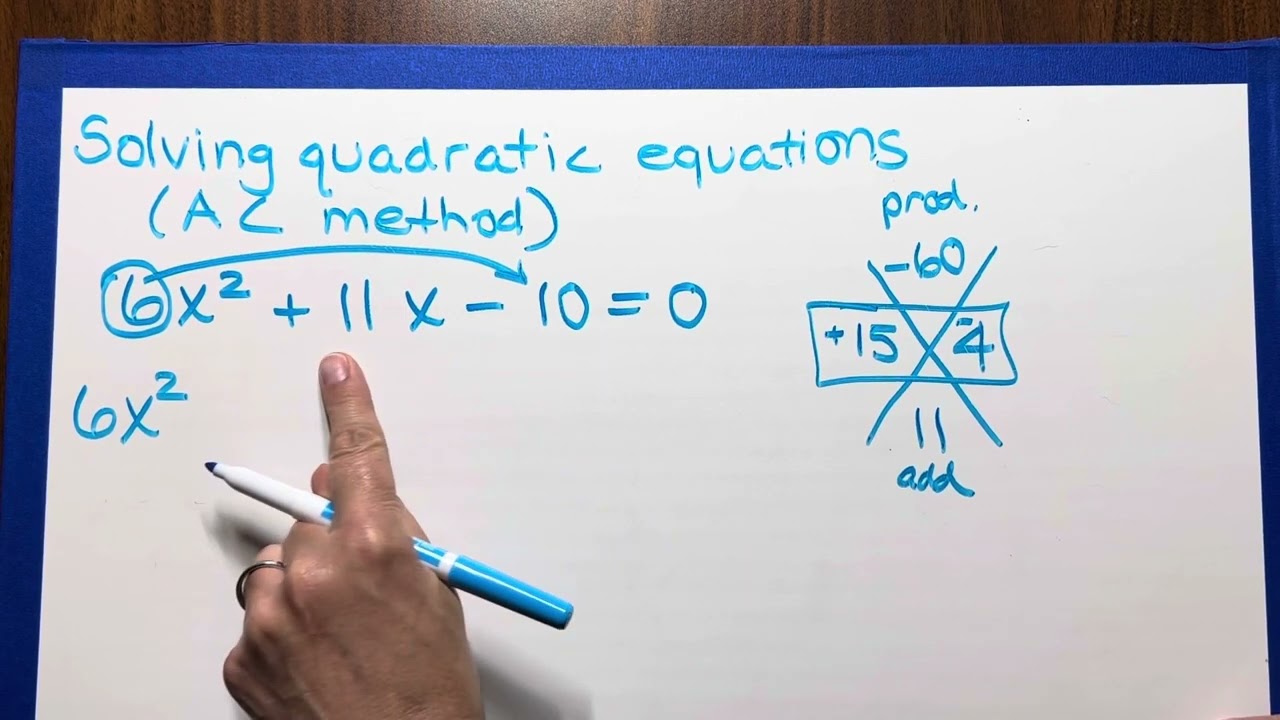 Solving quadratic equations
(AC method)
6x² + 11x - 10 = 0
6x²
prod.
-60
+15 -4
11
add